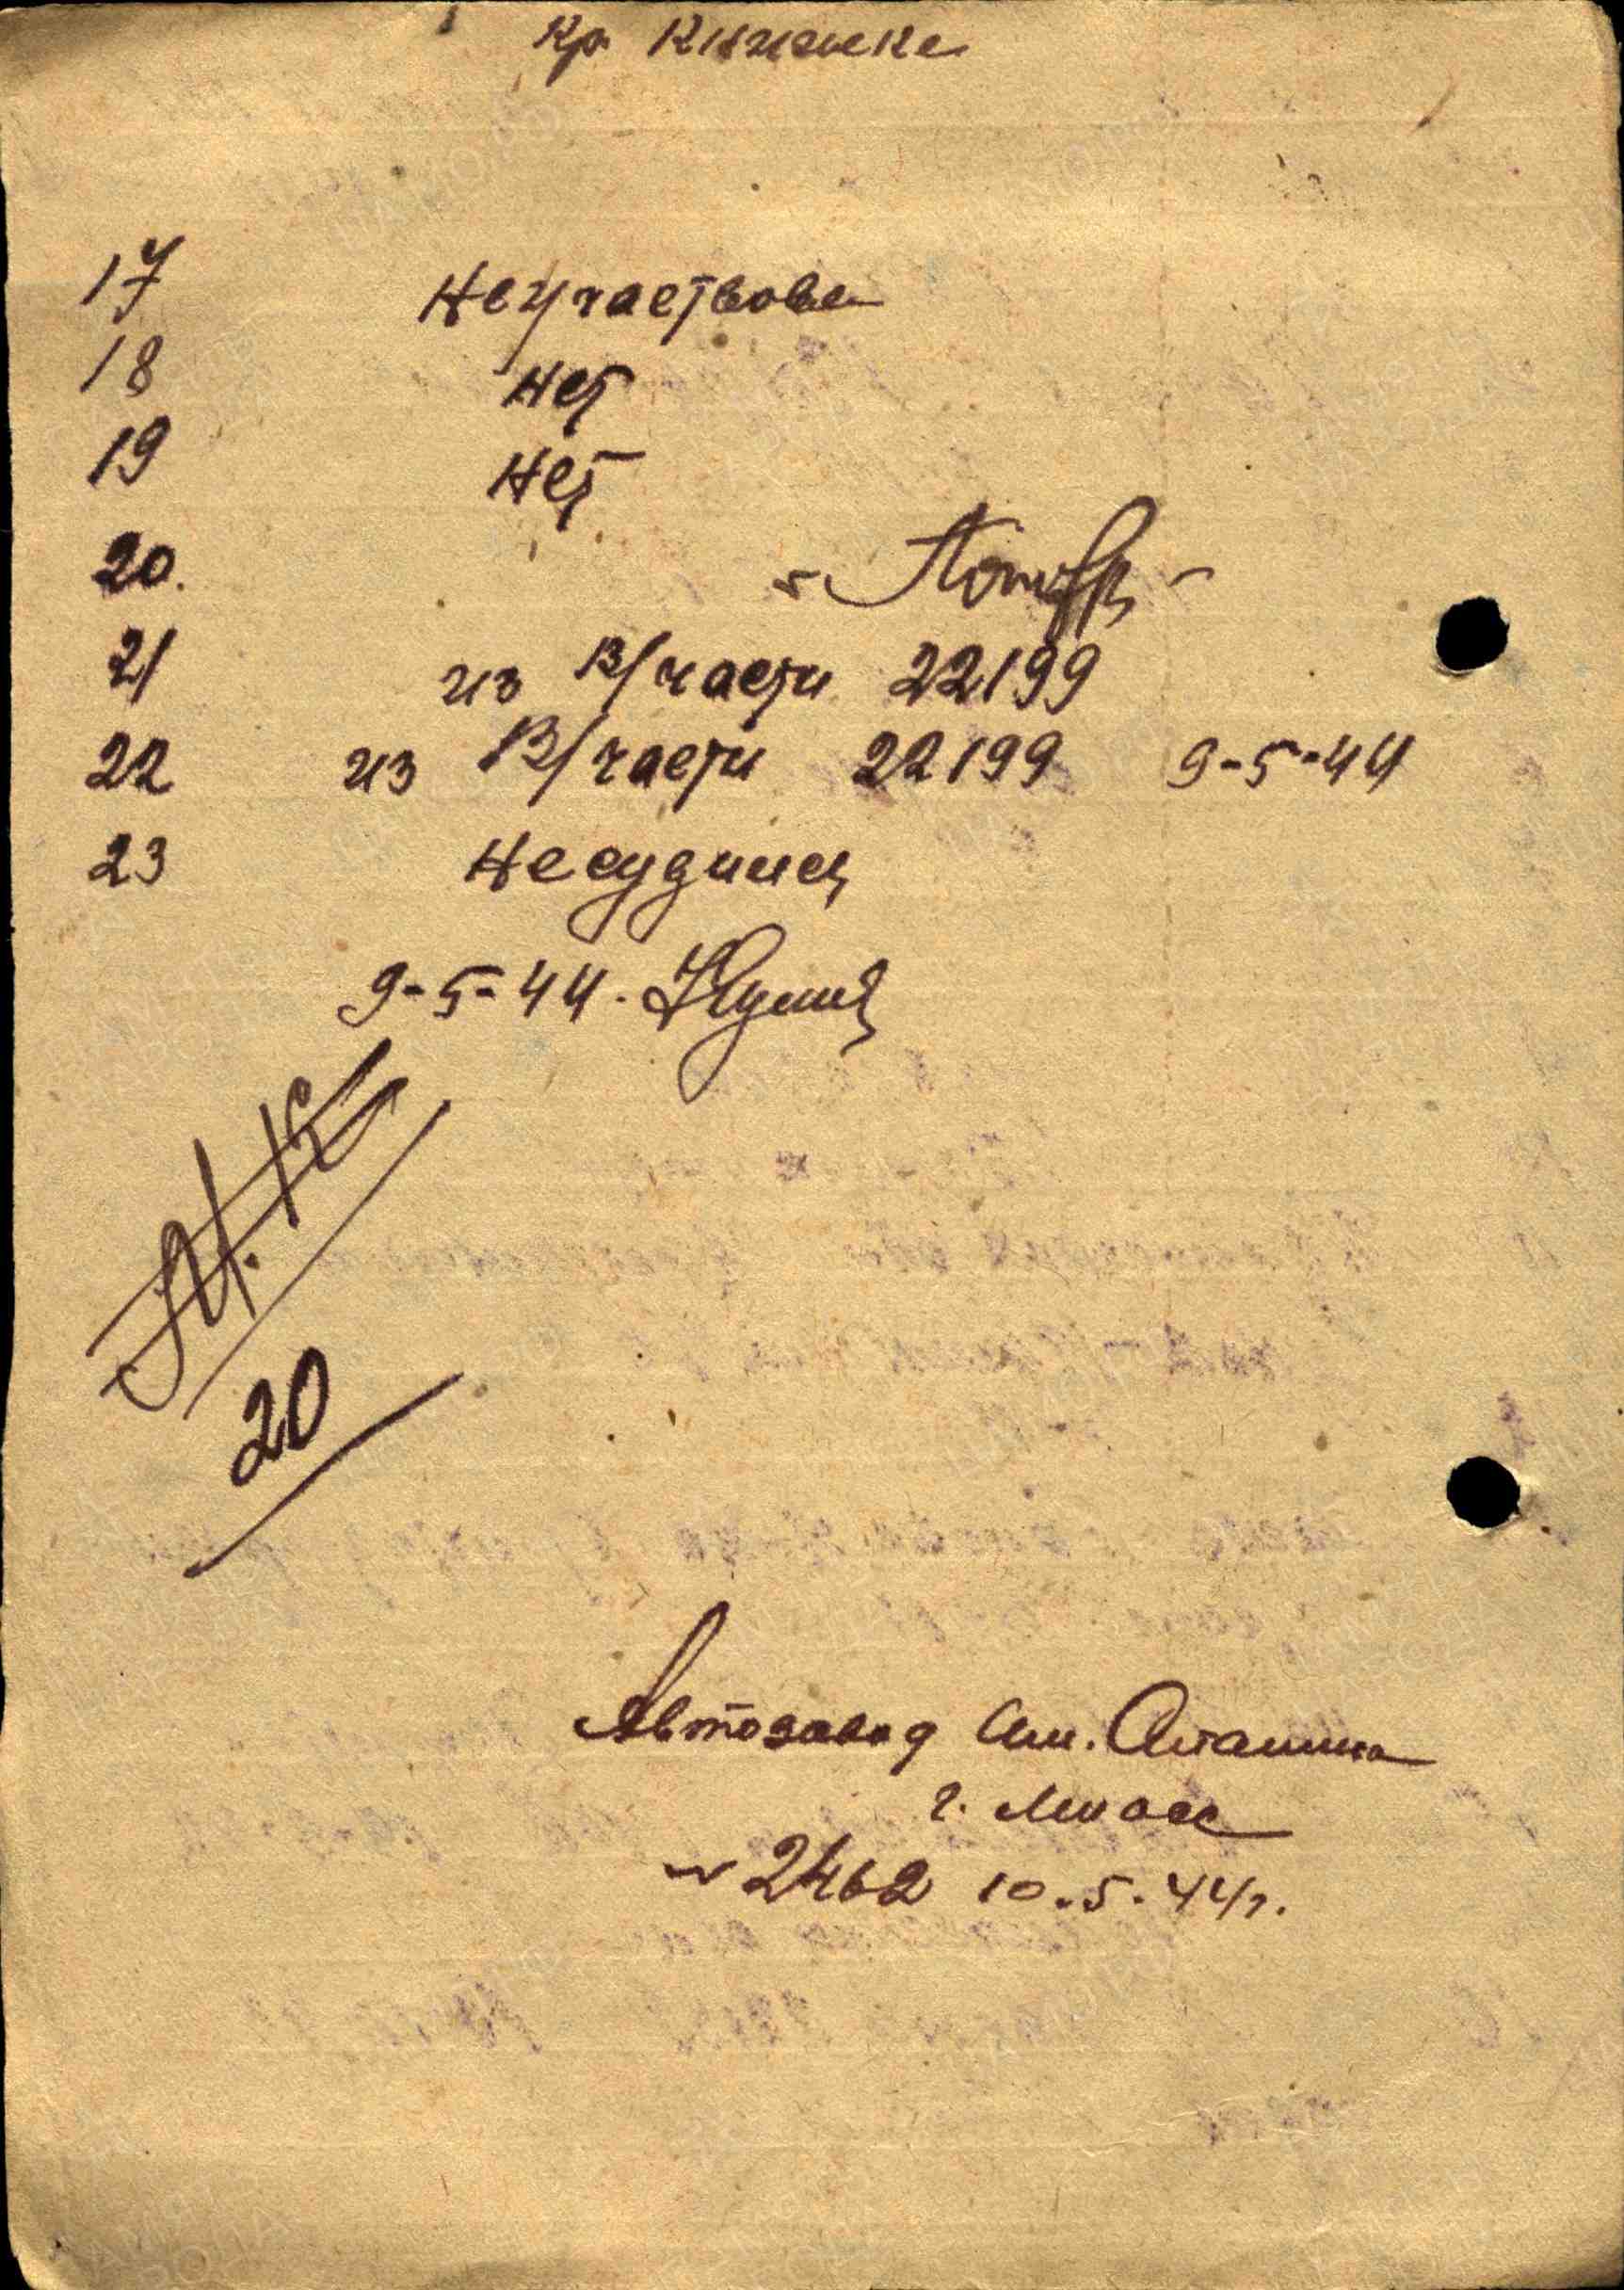 кр книжке
17 Неучаствовал
18 Нет
19 Нет
20.
21 из В/части 22199
22 из В/части 22199 9-5-44
23 Несудимый
9-5-44.
20
Автозавод Им. Сталина
г. Миасс
2462 10.5.44г.